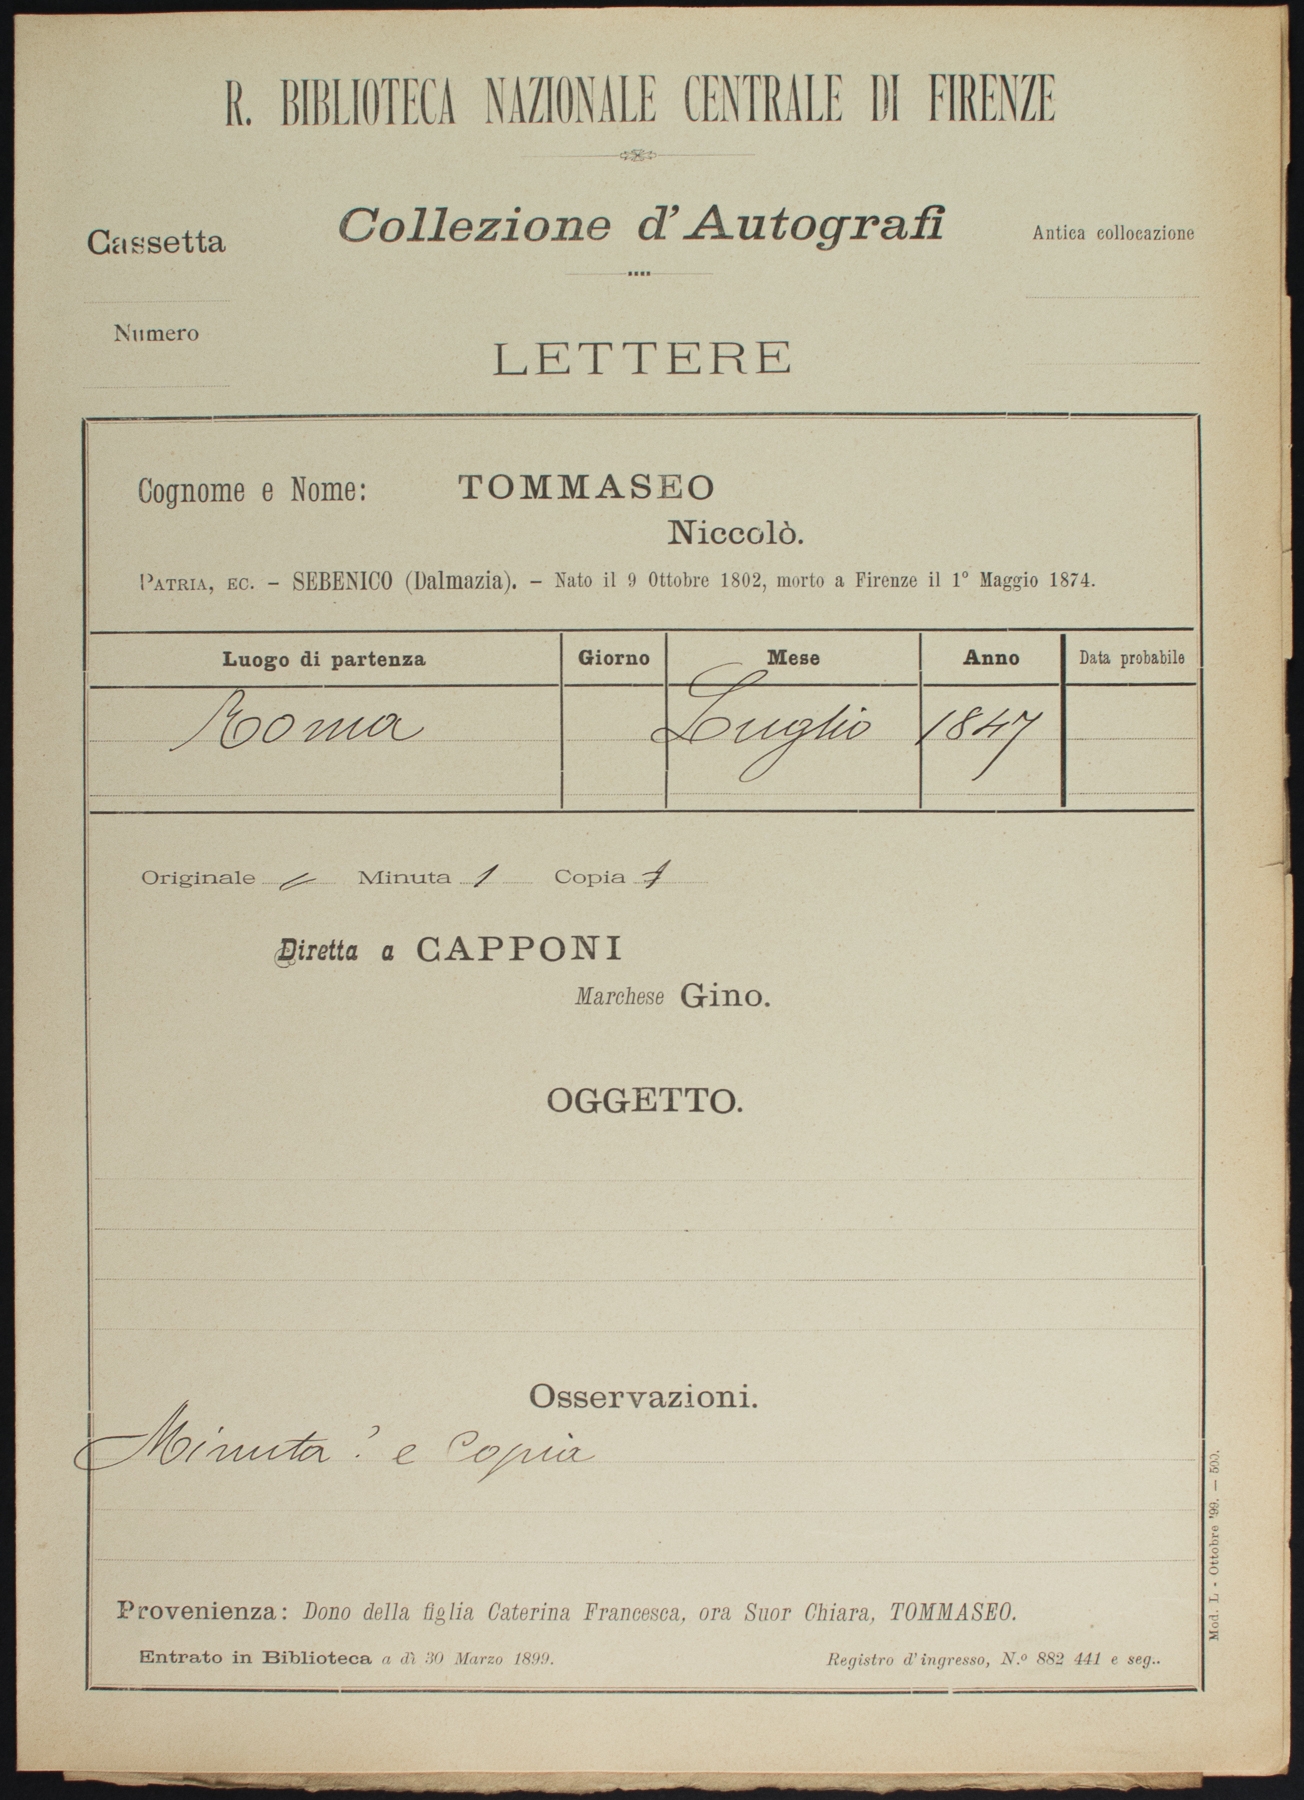 R. BIBLIOTECA NAZIONALE CENTRALE DI FIRENZE
Cassetta
Collezione d'Autografi
Antica collocazione
Numero
LETTERE
Cognome e Nome: TOMMASEO
Niccolò.
PATRIA, EC. – SEBENICO (Dalmazia). – Nato il 9 Ottobre 1802, morto a Firenze il 1º Maggio 1874.
Luogo di partenza Giorno Mese Anno Data probabile
Roma Luglio 1847
Originale // Minuta 1 Copia 1
Diretta a CAPPONI
Marchese Gino.
OGGETTO.
Osservazioni.
Minuta? e Copia
Provenienza: Dono della figlia Caterina Francesca, ora Suor Chiara, TOMMASEO.
Entrato in Biblioteca a dì 30 Marzo 1899. Registro d'ingresso, N.º 882 441 e seg..
Mod. L - Ottobre '99. — 500.